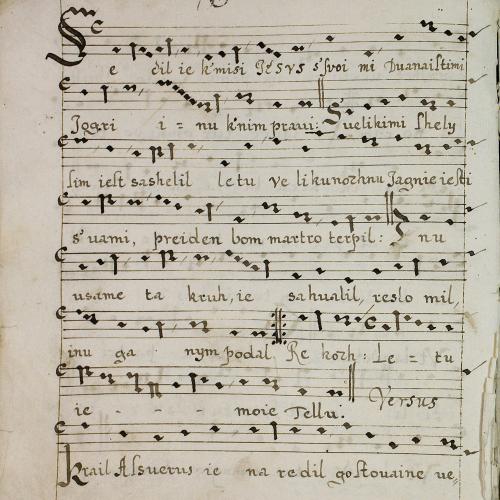 Se e dil ie k'misi Jesvs s'svoi mi Dvanaistimi
Iogri i = nu knim praui: Suelikimi shely
sim iest sashelil letu ve likunozhnu Jagnie iesti
s'uami, preiden bom martro terpil: I nu
usame ta kruh, ie sahualil, reslo mil,
inu ga nym podal Re kozh: Le = tu
ie - - - moie Tellu. Versus
Krail Assuerus ie na redil gostouaine ve,